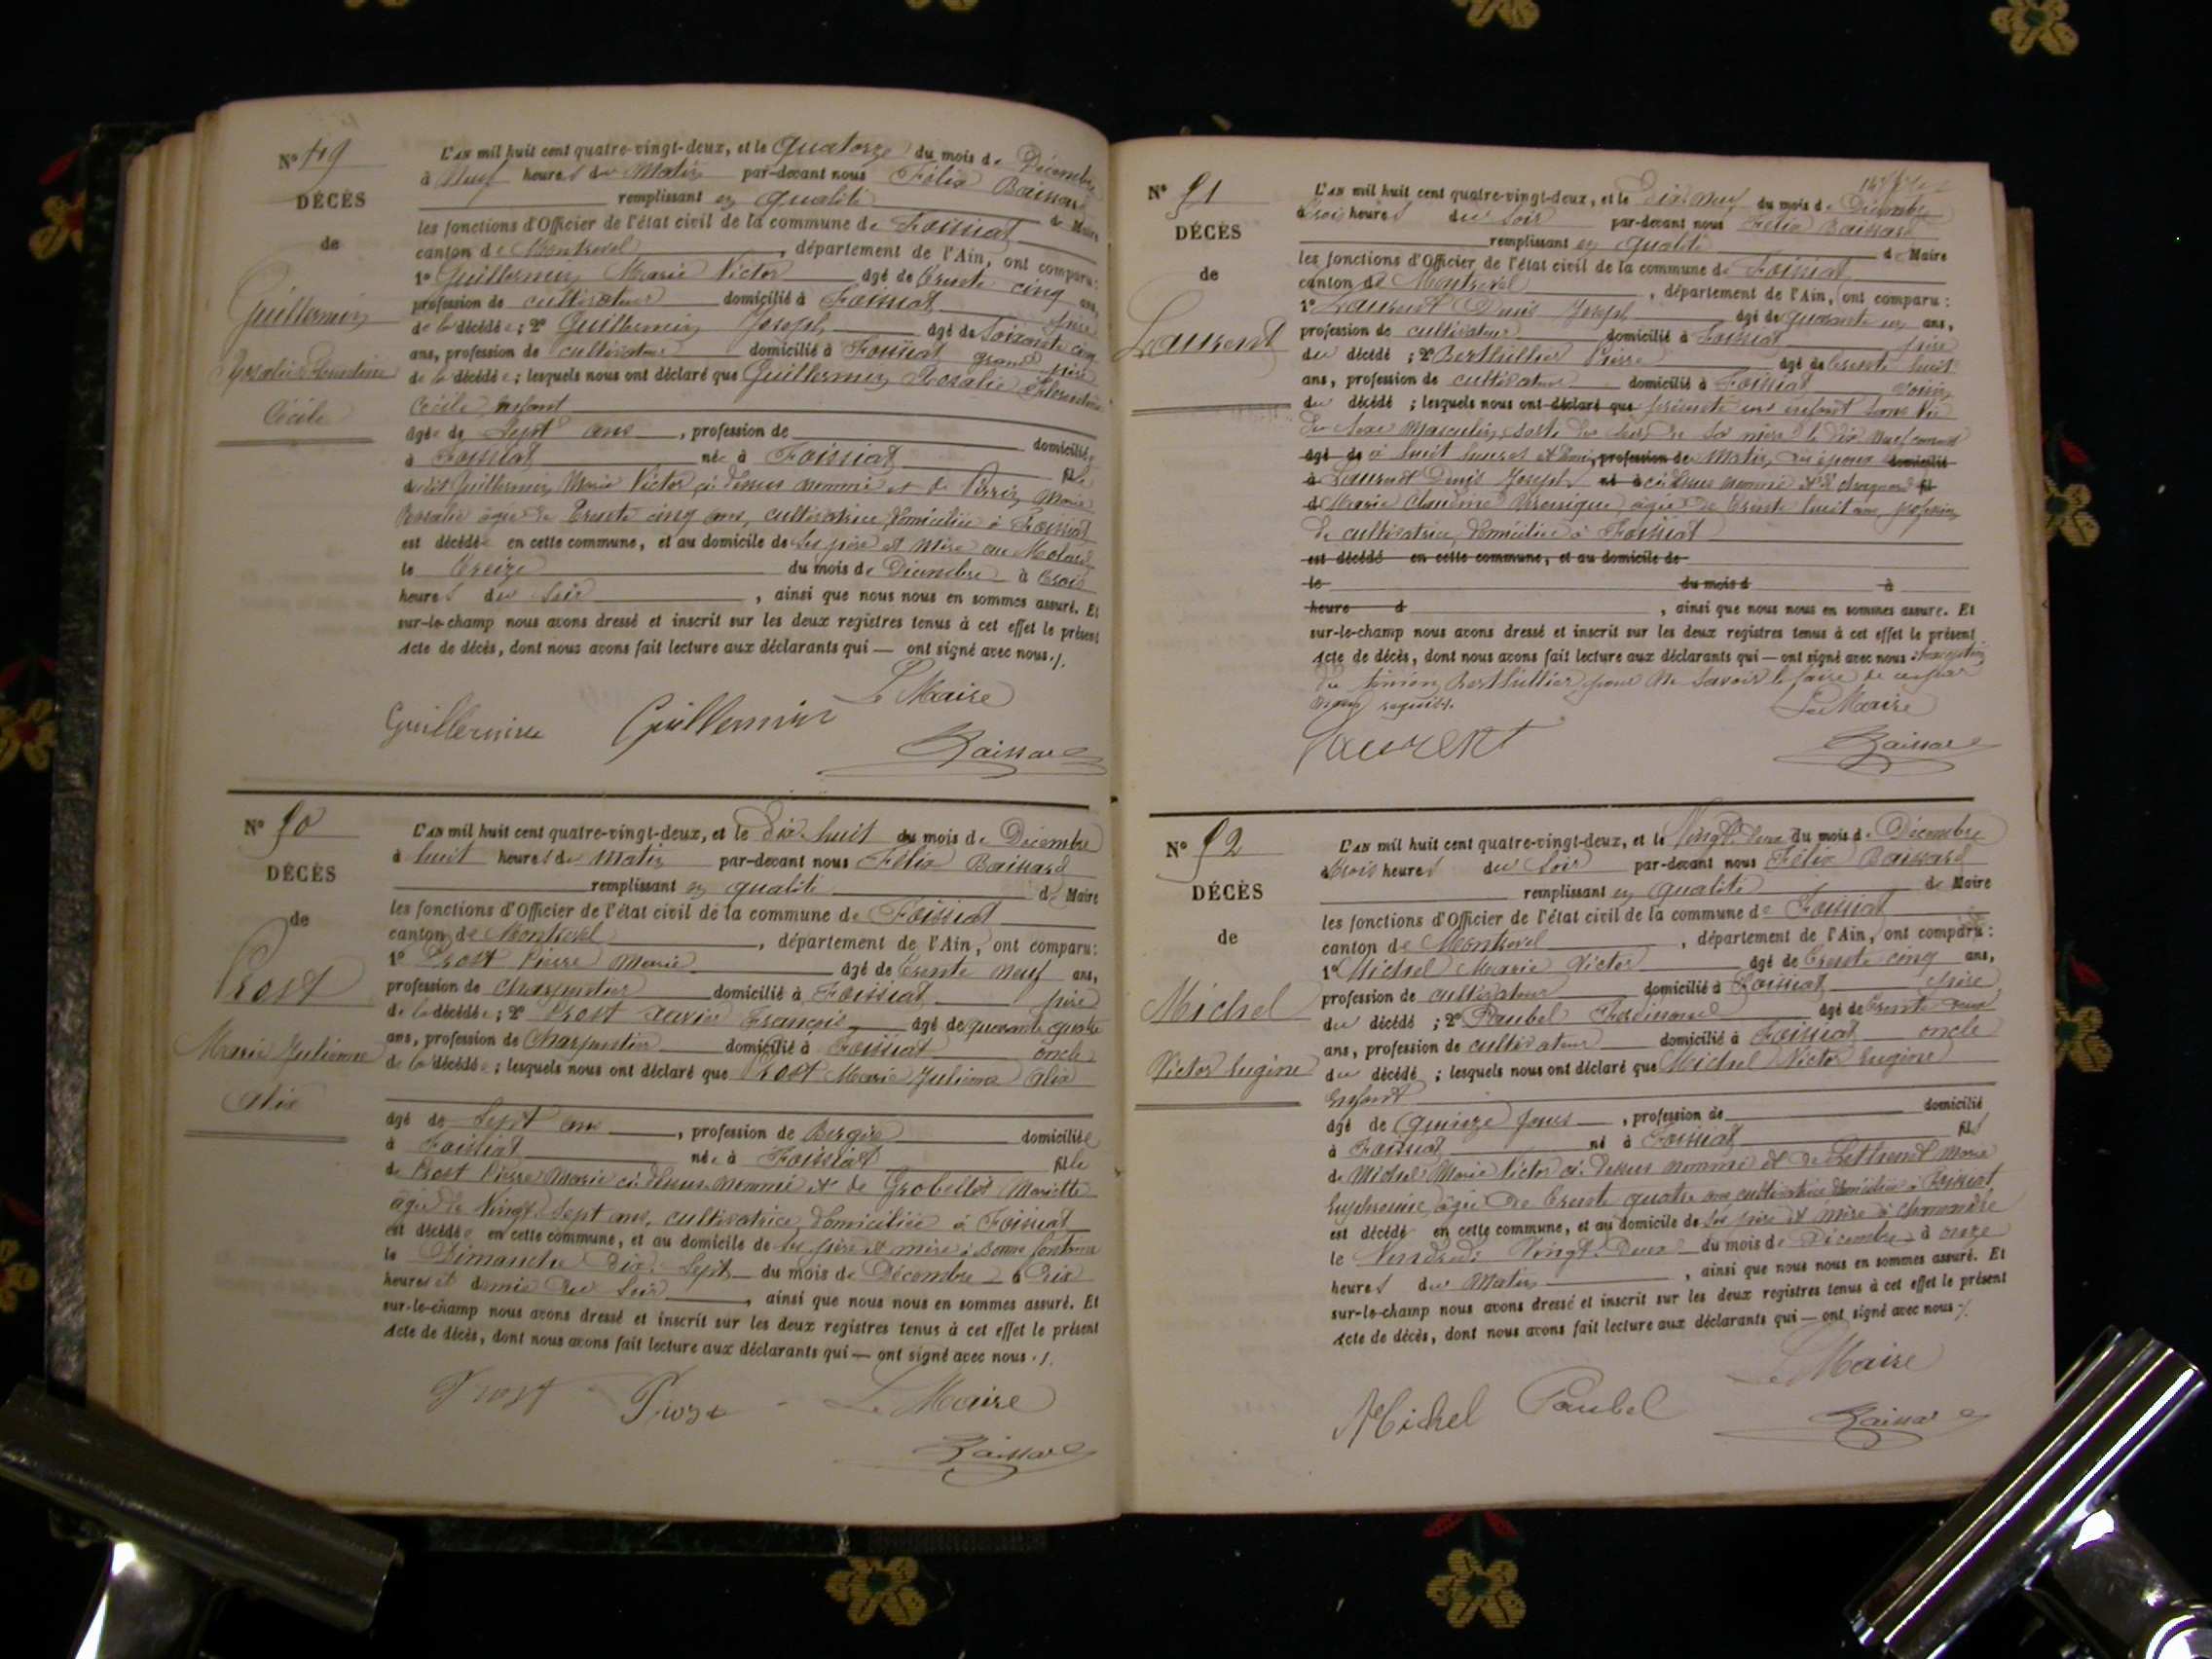 N° 49
DÉCÈS
de
Guillermin
Rosalie Florentine
Cécile
L'AN mil huit cent quatre-vingt-deux, et le quatorze du mois de Décembre
à Neuf heures du Matin par-devant nous Félix Baissard
remplissant en qualité de Maire
les fonctions d'Officier de l'état civil de la commune de Foissiat
canton de Montrevel, département de l'Ain, ont comparu:
1° Guillermin Marie Victor âgé de trente cinq ans,
profession de cultivateur domicilié à Foissiat père
de la décédée; 2° Guillermin Joseph âgé de soixante cinq
ans, profession de cultivateur domicilié à Foissiat grand père
de la décédée; lesquels nous ont déclaré que Guillermin Rosalie Florentine
Cécile Enfant
âgée de Sept ans, profession de domiciliée
à Foissiat née à Foissiat fille
dudit Guillermin Marie Victor ci-dessus nommé et de Perrin Marie
Rosalie âgée de trente cinq ans, cultivatrice, domiciliée à Foissiat
est décédée en cette commune, et au domicile de ses père et mère au Molard
le treize du mois de Décembre à trois
heures du soir, ainsi que nous nous en sommes assuré. Et
sur-le-champ nous avons dressé et inscrit sur les deux registres tenus à cet effet le présent
Acte de décès, dont nous avons fait lecture aux déclarants qui — ont signé avec nous ./.
Le Maire
Guillermin Guillermin
Baissard
N° 50
DÉCÈS
de
Prost
Marie Julienne
Alix
L'AN mil huit cent quatre-vingt-deux, et le dix-huit du mois de Décembre
à huit heures du Matin par-devant nous Félix Baissard
remplissant en qualité de Maire
les fonctions d'Officier de l'état civil de la commune de Foissiat
canton de Montrevel, département de l'Ain, ont comparu:
1° Prost Pierre Marie âgé de trente neuf ans,
profession de charpentier domicilié à Foissiat père
de la décédée; 2° Prost Xavier François âgé de quarante quatre
ans, profession de Charpentier domicilié à Foissiat oncle
de la décédée; lesquels nous ont déclaré que Prost Marie Julienne Alix
âgé de Sept ans, profession de Bergère domiciliée
à Foissiat née à Foissiat fille
de Prost Pierre Marie ci-dessus nommé et de Grobellet Mariette
âgée de Vingt Sept ans, cultivatrice, domiciliée à Foissiat
est décédée en cette commune, et au domicile de ses père et mère à Bonne fontaine
le Dimanche Dix Sept du mois de Décembre à Dix
heures et demie du Soir, ainsi que nous nous en sommes assuré. Et
sur-le-champ nous avons dressé et inscrit sur les deux registres tenus à cet effet le présent
Acte de décès, dont nous avons fait lecture aux déclarants qui — ont signé avec nous ./.
Prost Prost Le Maire
Baissard
N° 51
DÉCÈS
de
Laurent
L'AN mil huit cent quatre-vingt-deux, et le Dix neuf du mois de Décembre
à trois heures du Soir par-devant nous Félix Baissard
remplissant en qualité de Maire
les fonctions d'Officier de l'état civil de la commune de Foissiat
canton de Montrevel, département de l'Ain, ont comparu:
1° Laurent Denis Joseph âgé de quarante un ans,
profession de cultivateur domicilié à Foissiat père
du décédé; 2° Berthillier Pierre âgé de trente huit
ans, profession de cultivateur domicilié à Foissiat voisin
du décédé; lesquels nous ont déclaré que présenté un enfant sans Vie
du sexe Masculin, sorti du sein de sa mère le dix neuf courant
âgé de à huit heures et demie profession de Matin domicilié
à Laurent Denis Joseph né à ci-dessus nommé et de fil
de Marie Claudine Véronique, âgée de trente huit ans, profession
de cultivatrice, domiciliée à Foissiat
est décédé en cette commune, et au domicile de
le du mois d à
heure d, ainsi que nous nous en sommes assuré. Et
sur-le-champ nous avons dressé et inscrit sur les deux registres tenus à cet effet le présent
Acte de décès, dont nous avons fait lecture aux déclarants qui — ont signé avec nous à l'exception
du témoin Berthillier pour ne savoir le faire de ce par
nous requis.
Le Maire
Laurent
Baissard
N° 52
DÉCÈS
de
Michel
Victor Eugène
L'AN mil huit cent quatre-vingt-deux, et le Vingt deux du mois de Décembre
à trois heures du Soir par-devant nous Félix Baissard
remplissant en qualité de Maire
les fonctions d'Officier de l'état civil de la commune de Foissiat
canton de Montrevel, département de l'Ain, ont comparu:
1° Michel Marie Victor âgé de trente cinq ans,
profession de cultivateur domicilié à Foissiat père
du décédé; 2° Paubel Ferdinand âgé de trente deux
ans, profession de cultivateur domicilié à Foissiat oncle
du décédé; lesquels nous ont déclaré que Michel Victor Eugène
Enfant
âgé de quinze jours, profession de domicilié
à Foissiat né à Foissiat fils
de Michel Marie Victor ci-dessus nommé et de Marie
Euphrosine, âgée de trente quatre ans cultivatrice domiciliée à Foissiat
est décédé en cette commune, et au domicile de ses père et mère à
le Vendredi Vingt Deux du mois de Décembre à onze
heures du Matin, ainsi que nous nous en sommes assuré. Et
sur-le-champ nous avons dressé et inscrit sur les deux registres tenus à cet effet le présent
Acte de décès, dont nous avons fait lecture aux déclarants qui — ont signé avec nous ./.
Le Maire
Michel Paubel
Baissard